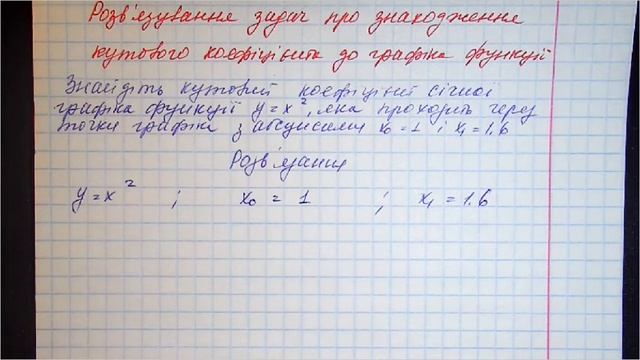 Розв'язування задач про знаходження
кутового коефіцієнта до графіка функції
Знайдіть кутовий коефіцієнт січної
графіка функції y = x², яка проходить через
точки графіка з абсцисами x₀ = 1 і x₁ = 1.6
Розв'язання
y = x² ; x₀ = 1 ; x₁ = 1.6